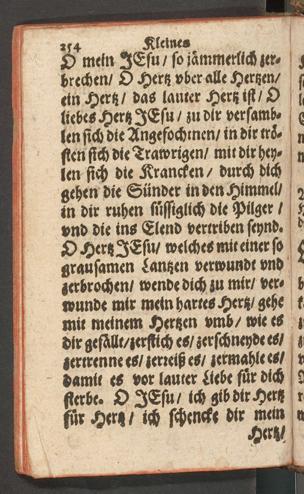 254 Kleines
O mein JEsu / so jämmerlich zer-
brechen / O Hertz vber alle Hertzen /
ein Hertz / das lauter Hertz ist / O
liebes Hertz JEsu / zu dir versamb-
len sich die Angefochtnen / in dir trö-
sten sich die Trawrigen / mit dir hey-
len sich die Krancken / durch dich
gehen die Sünder in den Himmel /
in dir ruhen süssiglich die Pilger /
vnd die ins Elend vertriben seynd.
O Hertz JEsu / welches mit einer so
grausamen Lantzen verwundt vnd
zerbrochen / wende dich zu mir / ver-
wunde mir mein hartes Hertz / gehe
mit meinem Hertzen vmb / wie es
dir gefälle / zerstich es / zerschneyde es /
zertrenne es / zerreiß es / zermahle es /
damit es vor lauter Liebe für dich
sterbe. O JEsu / ich gib dir Hertz
für Hertz / ich schencke dir mein
Hertz /